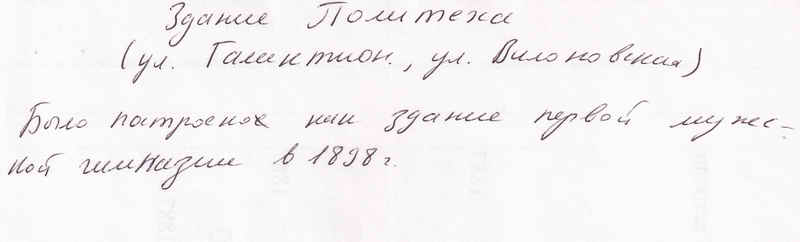 Здание Политеха
(ул. Галактион., ул. Вилоновская)
Было построено как здание первой мужс-
кой гимназии в 1898г.